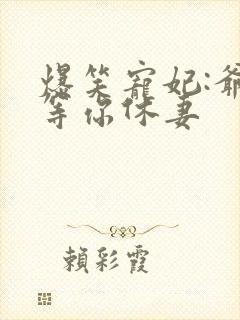 爆笑寵妃:爺
等你休妻
賴彩霞